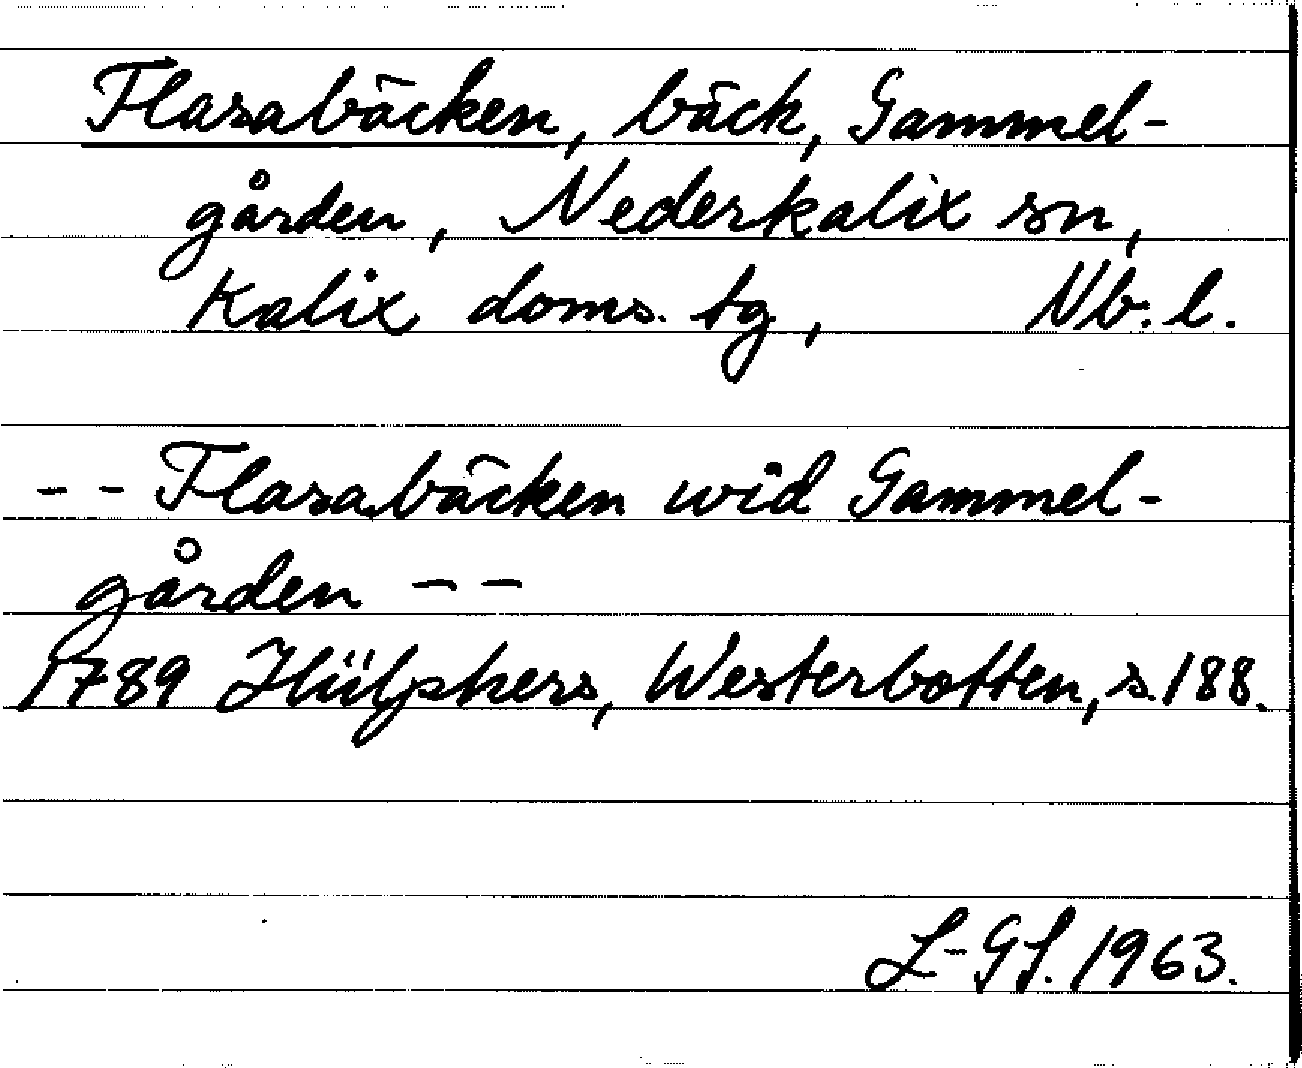 Flasabäcken, bäck, Gammel-
gården, Nederkalix sn,
Kalix doms. tg, Nb. l.
-- Flasabäcken wid Gammel-
gården --
1789 Hülphers, Westerbotten, s. 188.
L-GS. 1963.